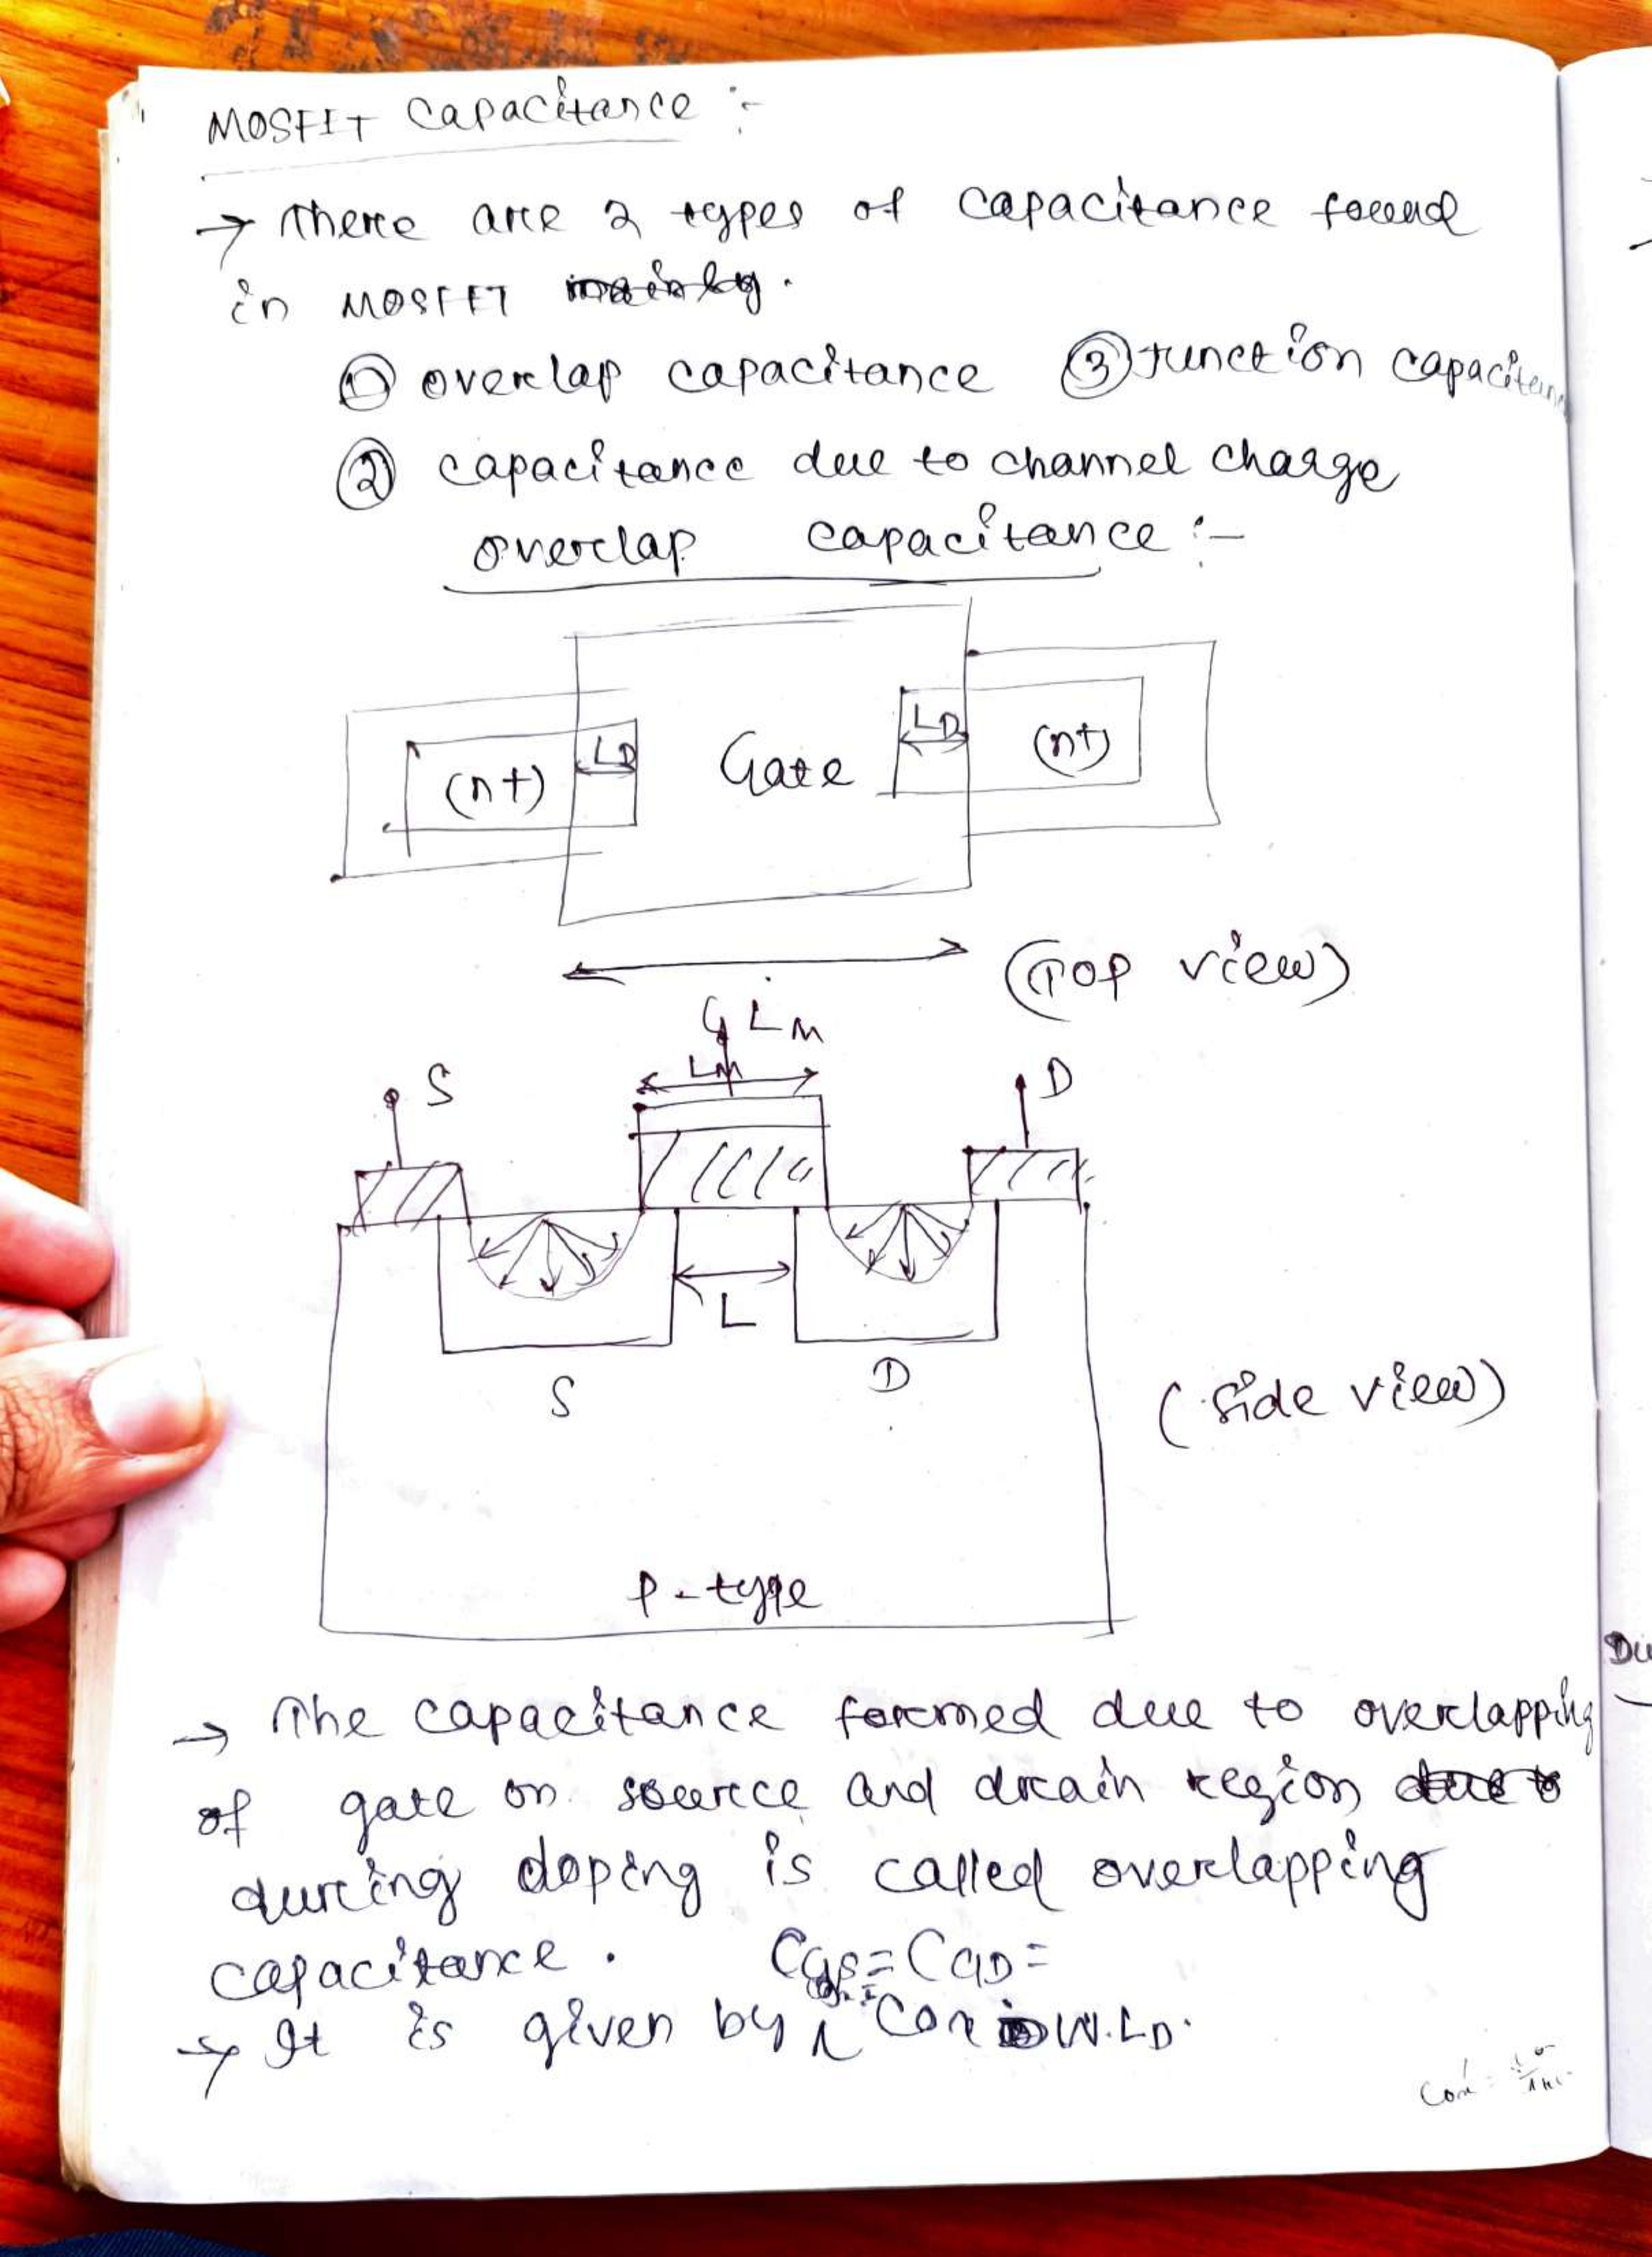 MOSFIT Capacitance :-
→ There are 2 types of capacitance found
in MOSFET mainly.
① overlap capacitance ③ Junction capacitan
② capacitance due to channel charge
overlap capacitance :-
LD
LD
(n+)
Gate
(n+)
(Top view)
G LM
S
LM
D
L
S
D
(side view)
P-type
→ The capacitance formed due to overlapping
of gate on source and drain region due to
during doping is called overlapping
capacitance. CGS = CGD =
→ It is given by Cox W.LD.
Cox =
Du